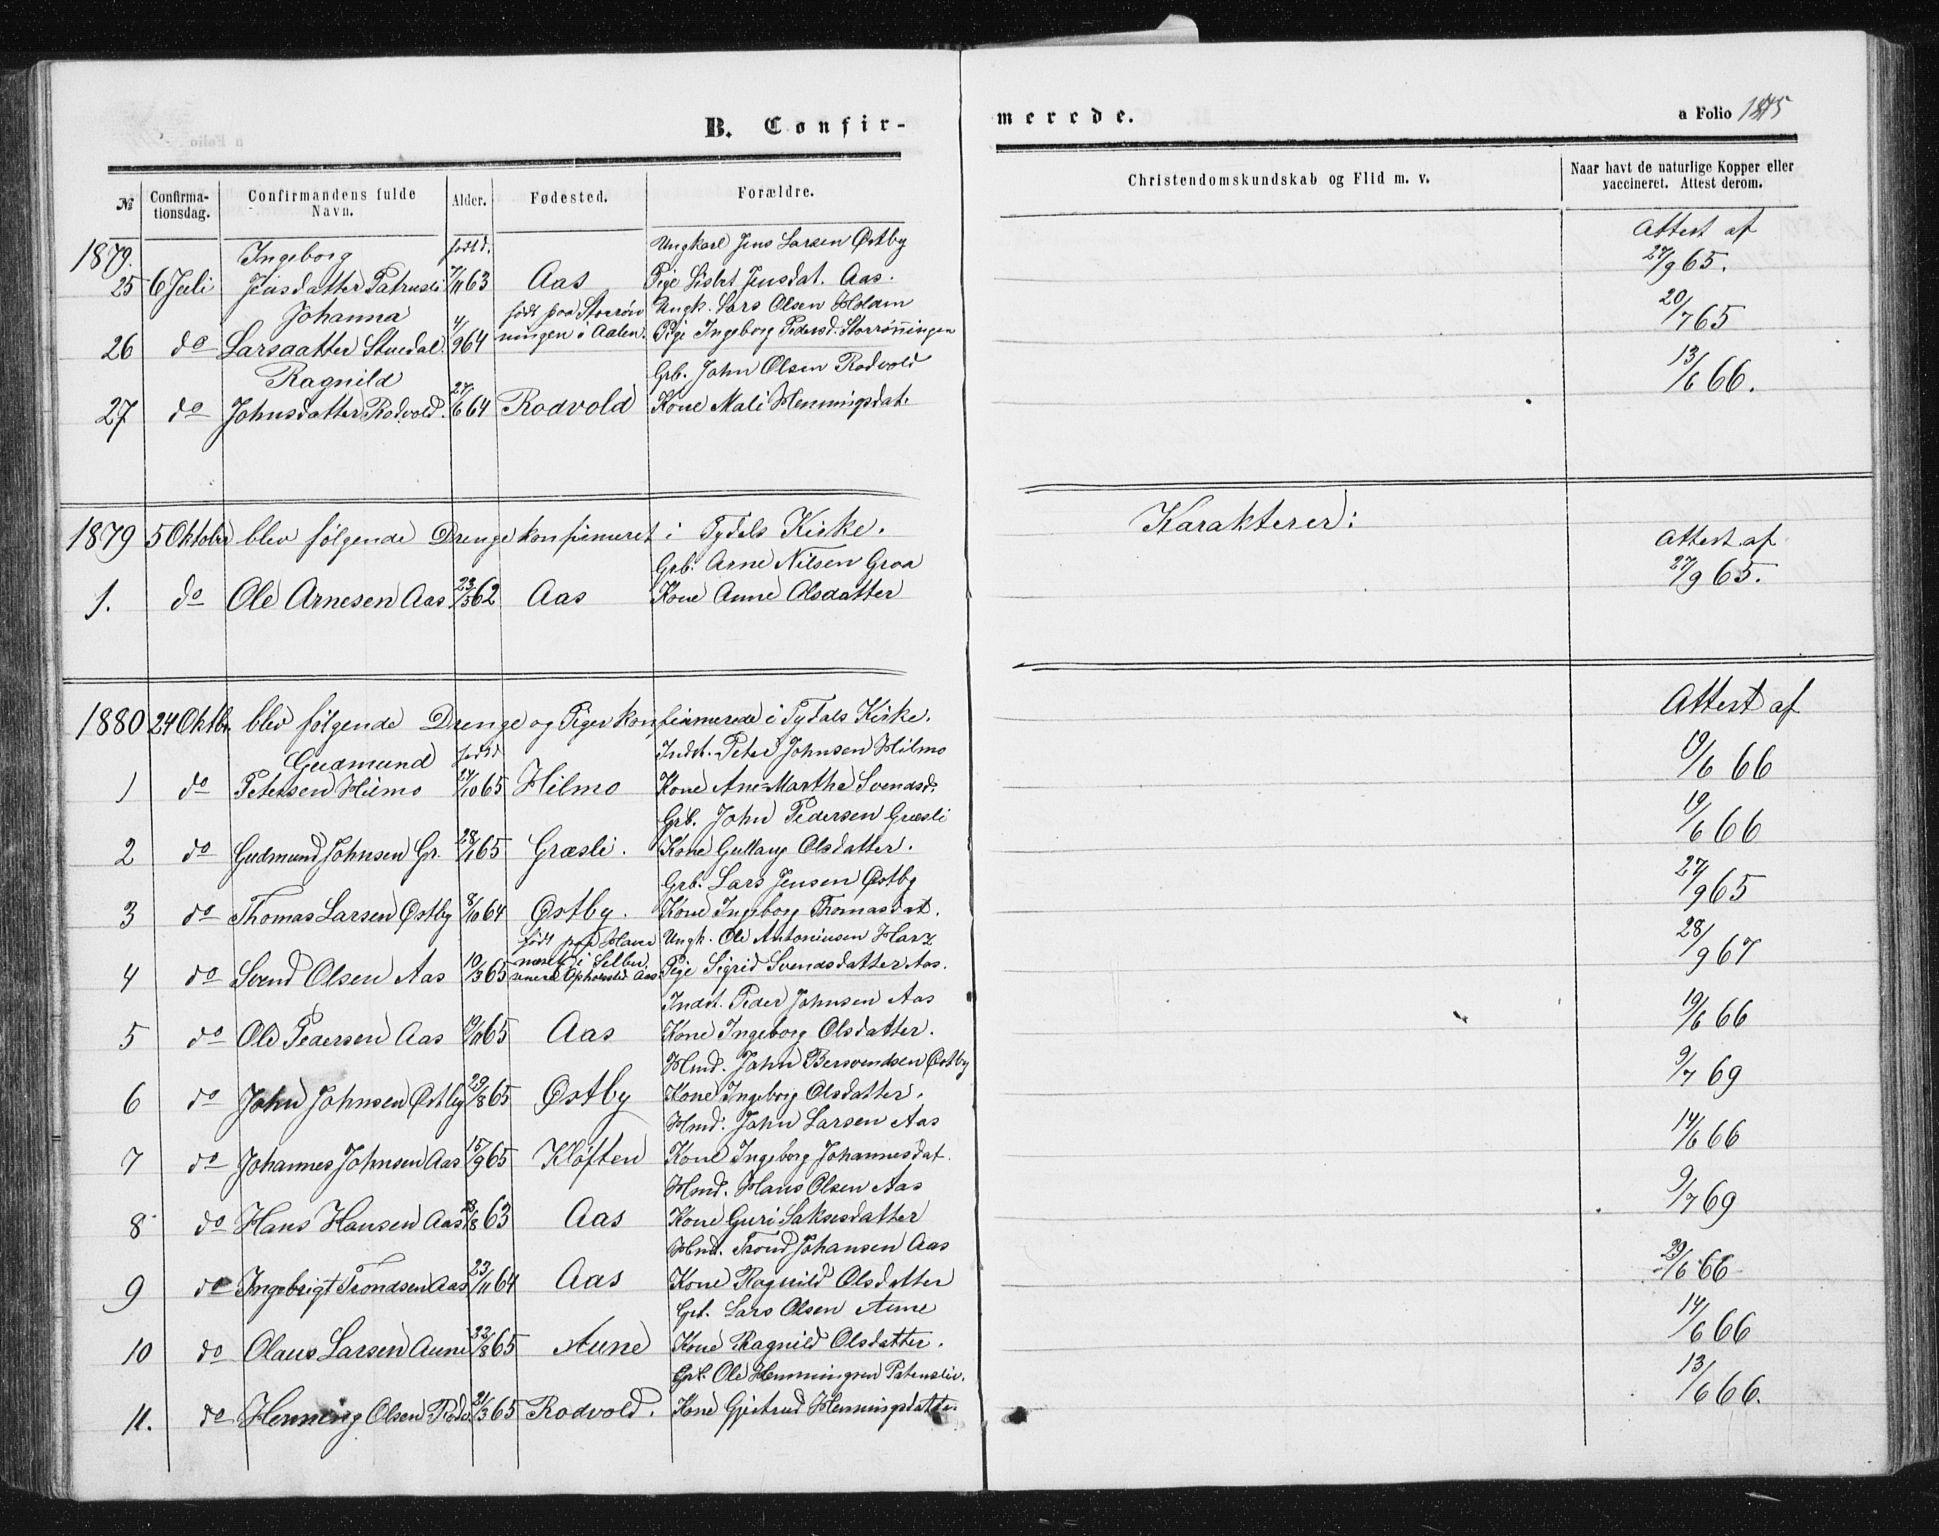 B. Confirmerede.
a Folio 1875
№ Confirmationsdag. Confirmandens fulde Navn. Alder. Fødested. Forældre. Christendomskundskab og Flid m. v. Naar havt de naturlige Kopper eller vaccineret. Attest derom.
1879. Ingeborg født d. Ungkarl Jens Larsen Østby Attest af
25 6 Juli Jensdatter Patrusli 7/11 63 Aas Pige Lisbet Jensdat. Aas. 27/9 65.
Johanna født paa Storrøn Ungk. Lars Olsen Holdm 20/7 65
26 do Larsdatter Stuedal. 4/9 64 ningen i Aalen. Pige Ingeborg Pedersd. Storrönningen
Ragnild Grb. John Olsen Rodvold 13/6 66.
27 do Johnsdatter Rodvold. 27/6 64 Rodvold Kone Mali Henningsdat.
1879 5 Oktober blev følgende Drenge konfirmeret i Tydals Kirke. Karakterer: Attest af
Grb. Arne Nilsen Groa 27/9 65.
1. do Ole Arnesen Aas 23/5 62 Aas Kone Anne Olsdatter
1880 24 Oktbr. blev følgende Drenge og Piger konfirmerede i Tydals Kirke. Attest af
Gudmund født Indst. Peter Johnsen Hilmo 19/6 66
1 do Petersen Hilmo 24/10 65 Hilmo Kone Ane-Martha Svendsd.
Grb. John Pedersen Græsli 19/6 66
2 do Gudmund Johnsen Gr. 28/1 65 Græsli. Kone Gullaug Olsdatter.
Grb. Lars Jensen Østby 27/9 65
3 do Thomas Larsen Østby 8/10 64 Østby. Kone Ingeborg Thomasdat.
født paa Have Ungk. Ole Antoniusen Harz 28/9 67
4 do Svend Olsen Aas 10/3 65 i Selbu Opholdsted Aas. Pige Sigrid Svendsdatter Aas.
Indst. Peder Johnsen Aas 19/6 66
5 do Ole Pedersen Aas 19/11 65 Aas Kone Ingeborg Olsdatter.
Hmd. John Bersvendsen Østby 9/7 69
6 do John Johnsen Østby 29/8 65 Østby Kone Ingeborg Olsdatter.
Hmd. John Larsen Aas 14/6 66
7 do Johannes Johnsen Aas 15/9 65 Kløften Kone Ingeborg Johannesdat.
Hmd. Hans Olsen Aas 9/7 69
8 do Hans Hansen Aas 23/8 63 Aas Kone Guri Saksesdatter
Hmd. Trond Johansen Aas 29/6 66
9 do Ingebrigt Trondsen Aas 23/11 64 Aas Kone Ragnild Olsdatter
Grb. Lars Olsen Aune 14/6 66
10 do Olaus Larsen Aune 22/8 65 Aune Kone Ragnild Olsdatter.
Grb. Ole Henningsen Patrusliv. 13/6 66.
11. do Henning Olsen Rodv. 21/3 65 Rodvold. Kone Gjertrud Henningsdatter.